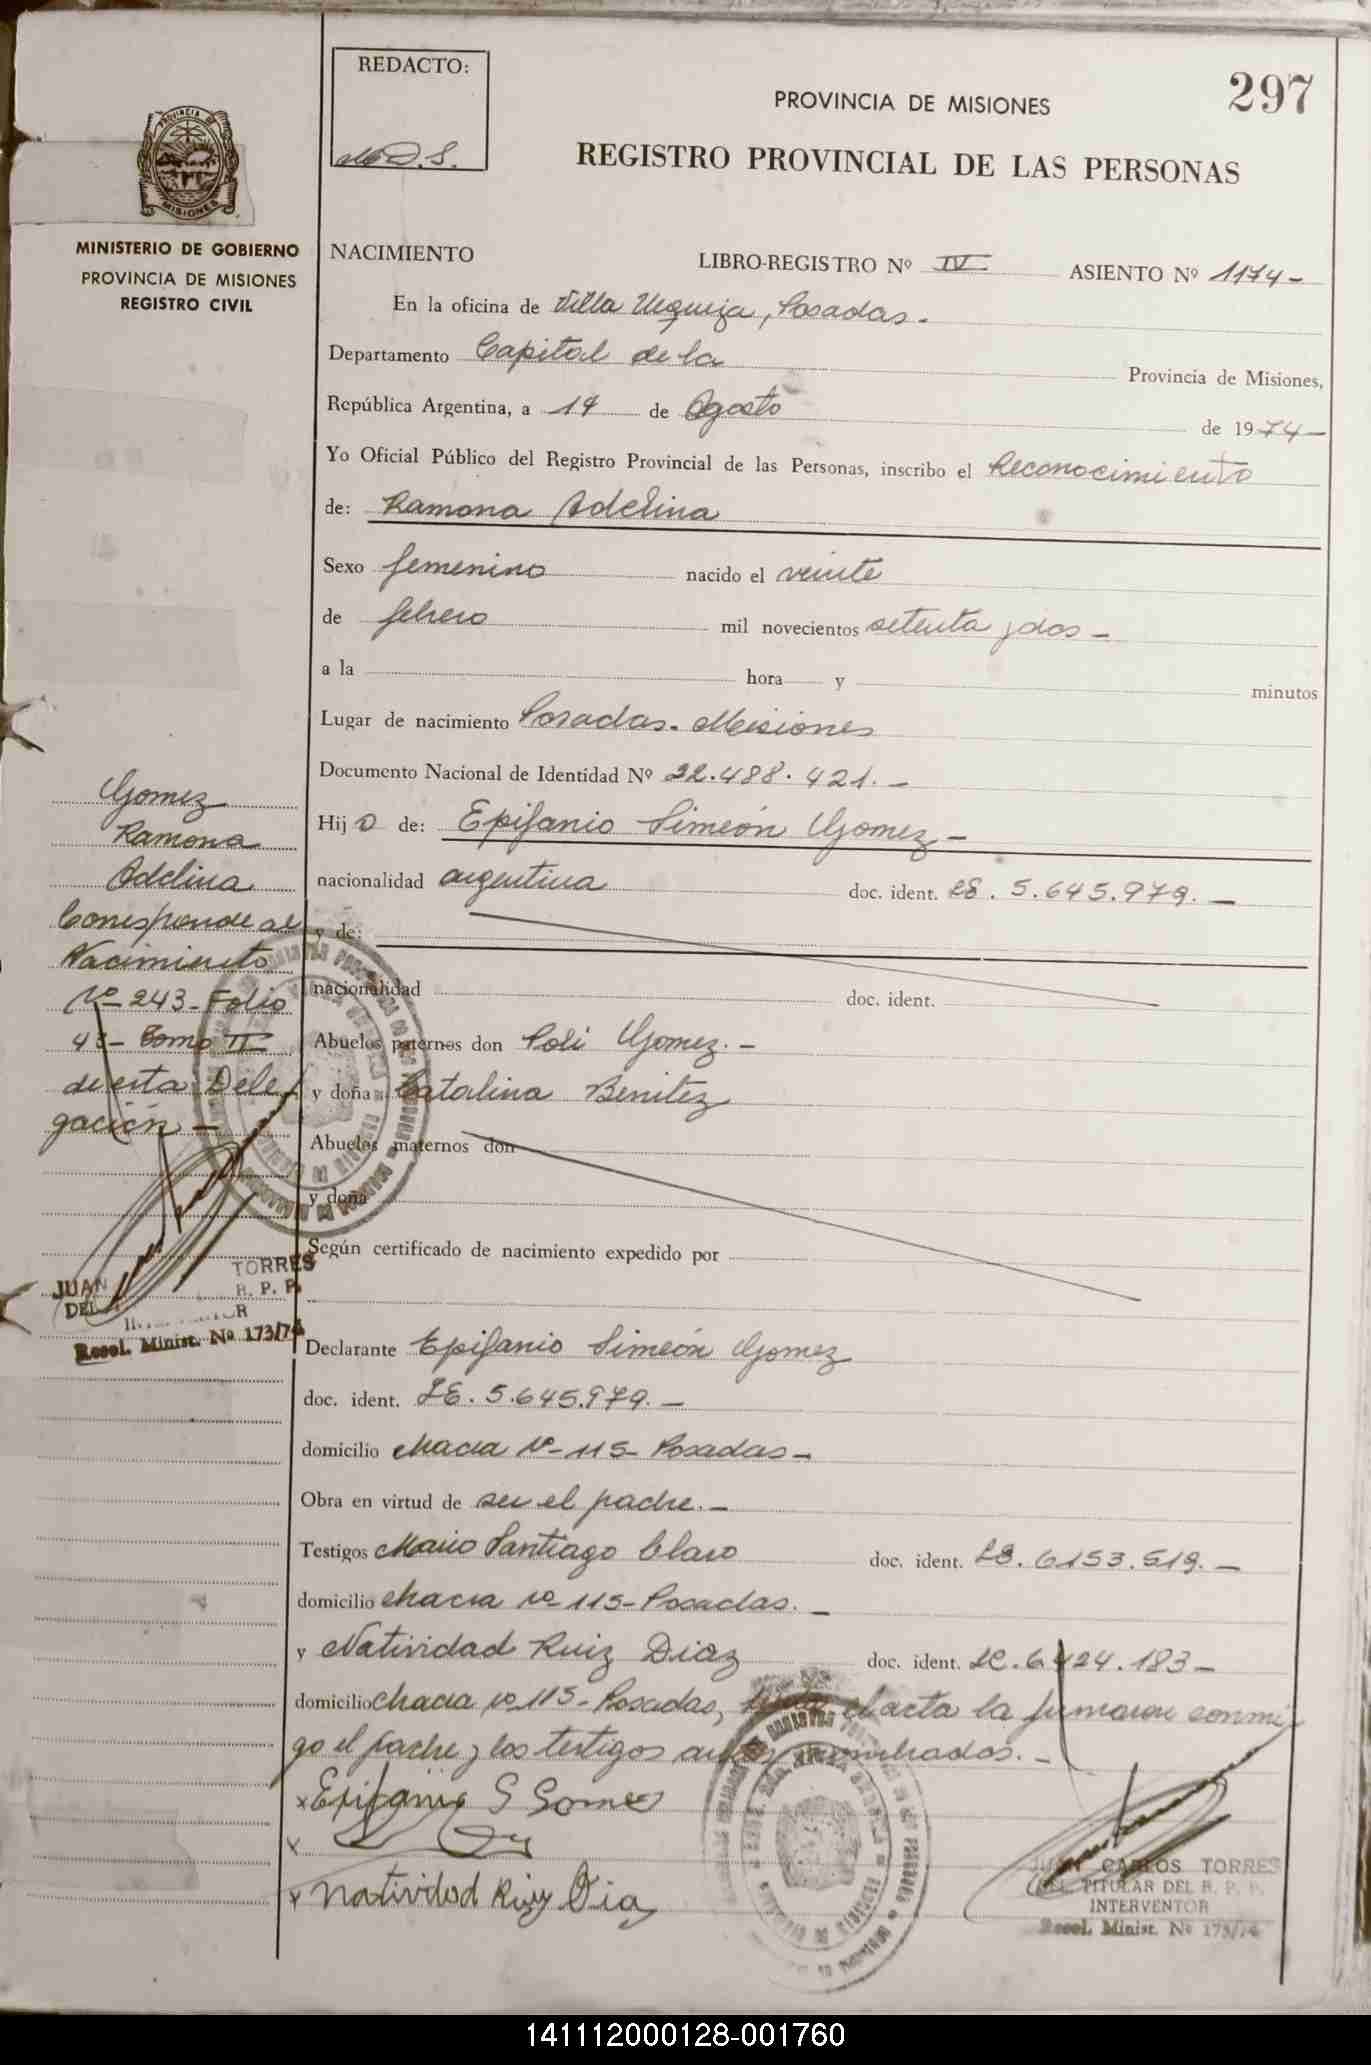 REDACTO:
D. S.
297
PROVINCIA DE MISIONES
REGISTRO PROVINCIAL DE LAS PERSONAS
PROVINCIA DE
MISIONES
MINISTERIO DE GOBIERNO
PROVINCIA DE MISIONES
REGISTRO CIVIL
NACIMIENTO LIBRO-REGISTRO Nº IV ASIENTO Nº 1174-
En la oficina de Villa Urquiza, Posadas.
Departamento Capital de la Provincia de Misiones,
República Argentina, a 14 de Agosto de 1974-
Yo Oficial Público del Registro Provincial de las Personas, inscribo el Reconocimiento
de: Ramona Adelina
Sexo femenino nacido el veinte
de febrero mil novecientos setenta y dos -
a la hora y minutos
Lugar de nacimiento Posadas. Misiones
Documento Nacional de Identidad Nº 22.488.421. -
Hij o de: Epifanio Simeón Gomez -
nacionalidad argentina doc. ident. LE. 5.645.979. -
y de:
nacionalidad doc. ident.
Abuelos paternos don Poli Gomez. -
y doña Catalina Benitez
Abuelos maternos don
y doña
Según certificado de nacimiento expedido por
Declarante Epifanio Simeón Gomez
doc. ident. LE. 5.645.979. -
domicilio chacra Nº 115 Posadas -
Obra en virtud de ser el padre. -
Testigos Mario Santiago Claro doc. ident. LE. 6153.519. -
domicilio chacra nº 115 - Posadas. -
y Natividad Ruiz Diaz doc. ident. LE. 6.424.183 -
domicilio chacra nº 115 - Posadas, el acta la firmaron conmi
go el padre y los testigos nombrados. -
x Epifanio S Gomes
x
x Natividad Ruiz Dia
Gomez
Ramona
Adelina
Corresponde al
Nacimiento
Nº 243 - Folio
43 - Tomo II
de esta Dele
gación -
JUAN TORRES
DEL R. P. P.
Resol. Minist. Nº 173/74
JUAN CARLOS TORRES
TITULAR DEL R. P. P.
INTERVENTOR
Resol. Minist. Nº 173/74
141112000128-001760